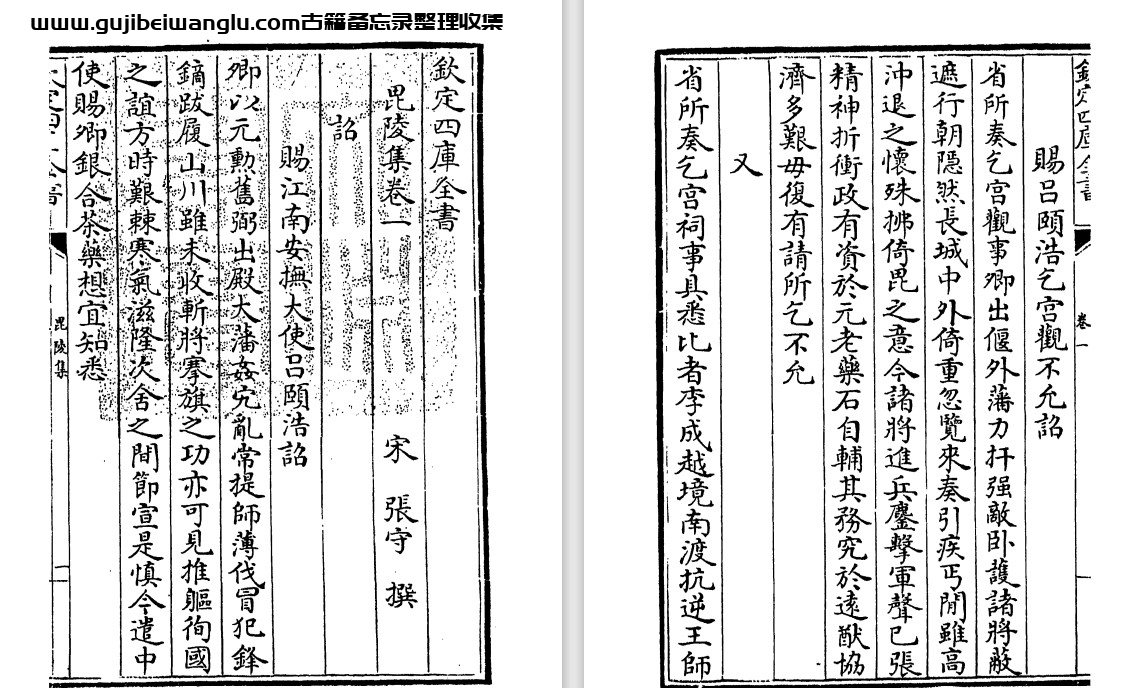 www.gujibeiwanglu.com古籍备忘录整理收集
欽定四庫全書
毘陵集卷一 宋 張守 撰
詔
賜江南安撫大使呂頤浩詔
卿以元勲舊弼出殿大藩姦宄亂常提師薄伐冒犯鋒
鏑跋履山川雖未收斬將搴旗之功亦可見推軀徇國
之誼方時艱棘寒氣滋隆次舍之間節宣是慎今遣中
使賜卿銀合茶藥想宜知悉
毘陵集
一
欽定四庫全書
卷一
賜呂頤浩乞宮觀不允詔
省所奏乞宮觀事卿出偃外藩力扞强敵卧護諸將蔽
遮行朝隠然長城中外倚重忽覽來奏引疾丐閒雖高
沖退之懷殊拂倚毘之意今諸將進兵鏖擊軍聲已張
精神折衝政有資於元老藥石自輔其務究於遠猷協
濟多艱毋復有請所乞不允
又
省所奏乞宮祠事具悉比者李成越境南渡抗逆王師